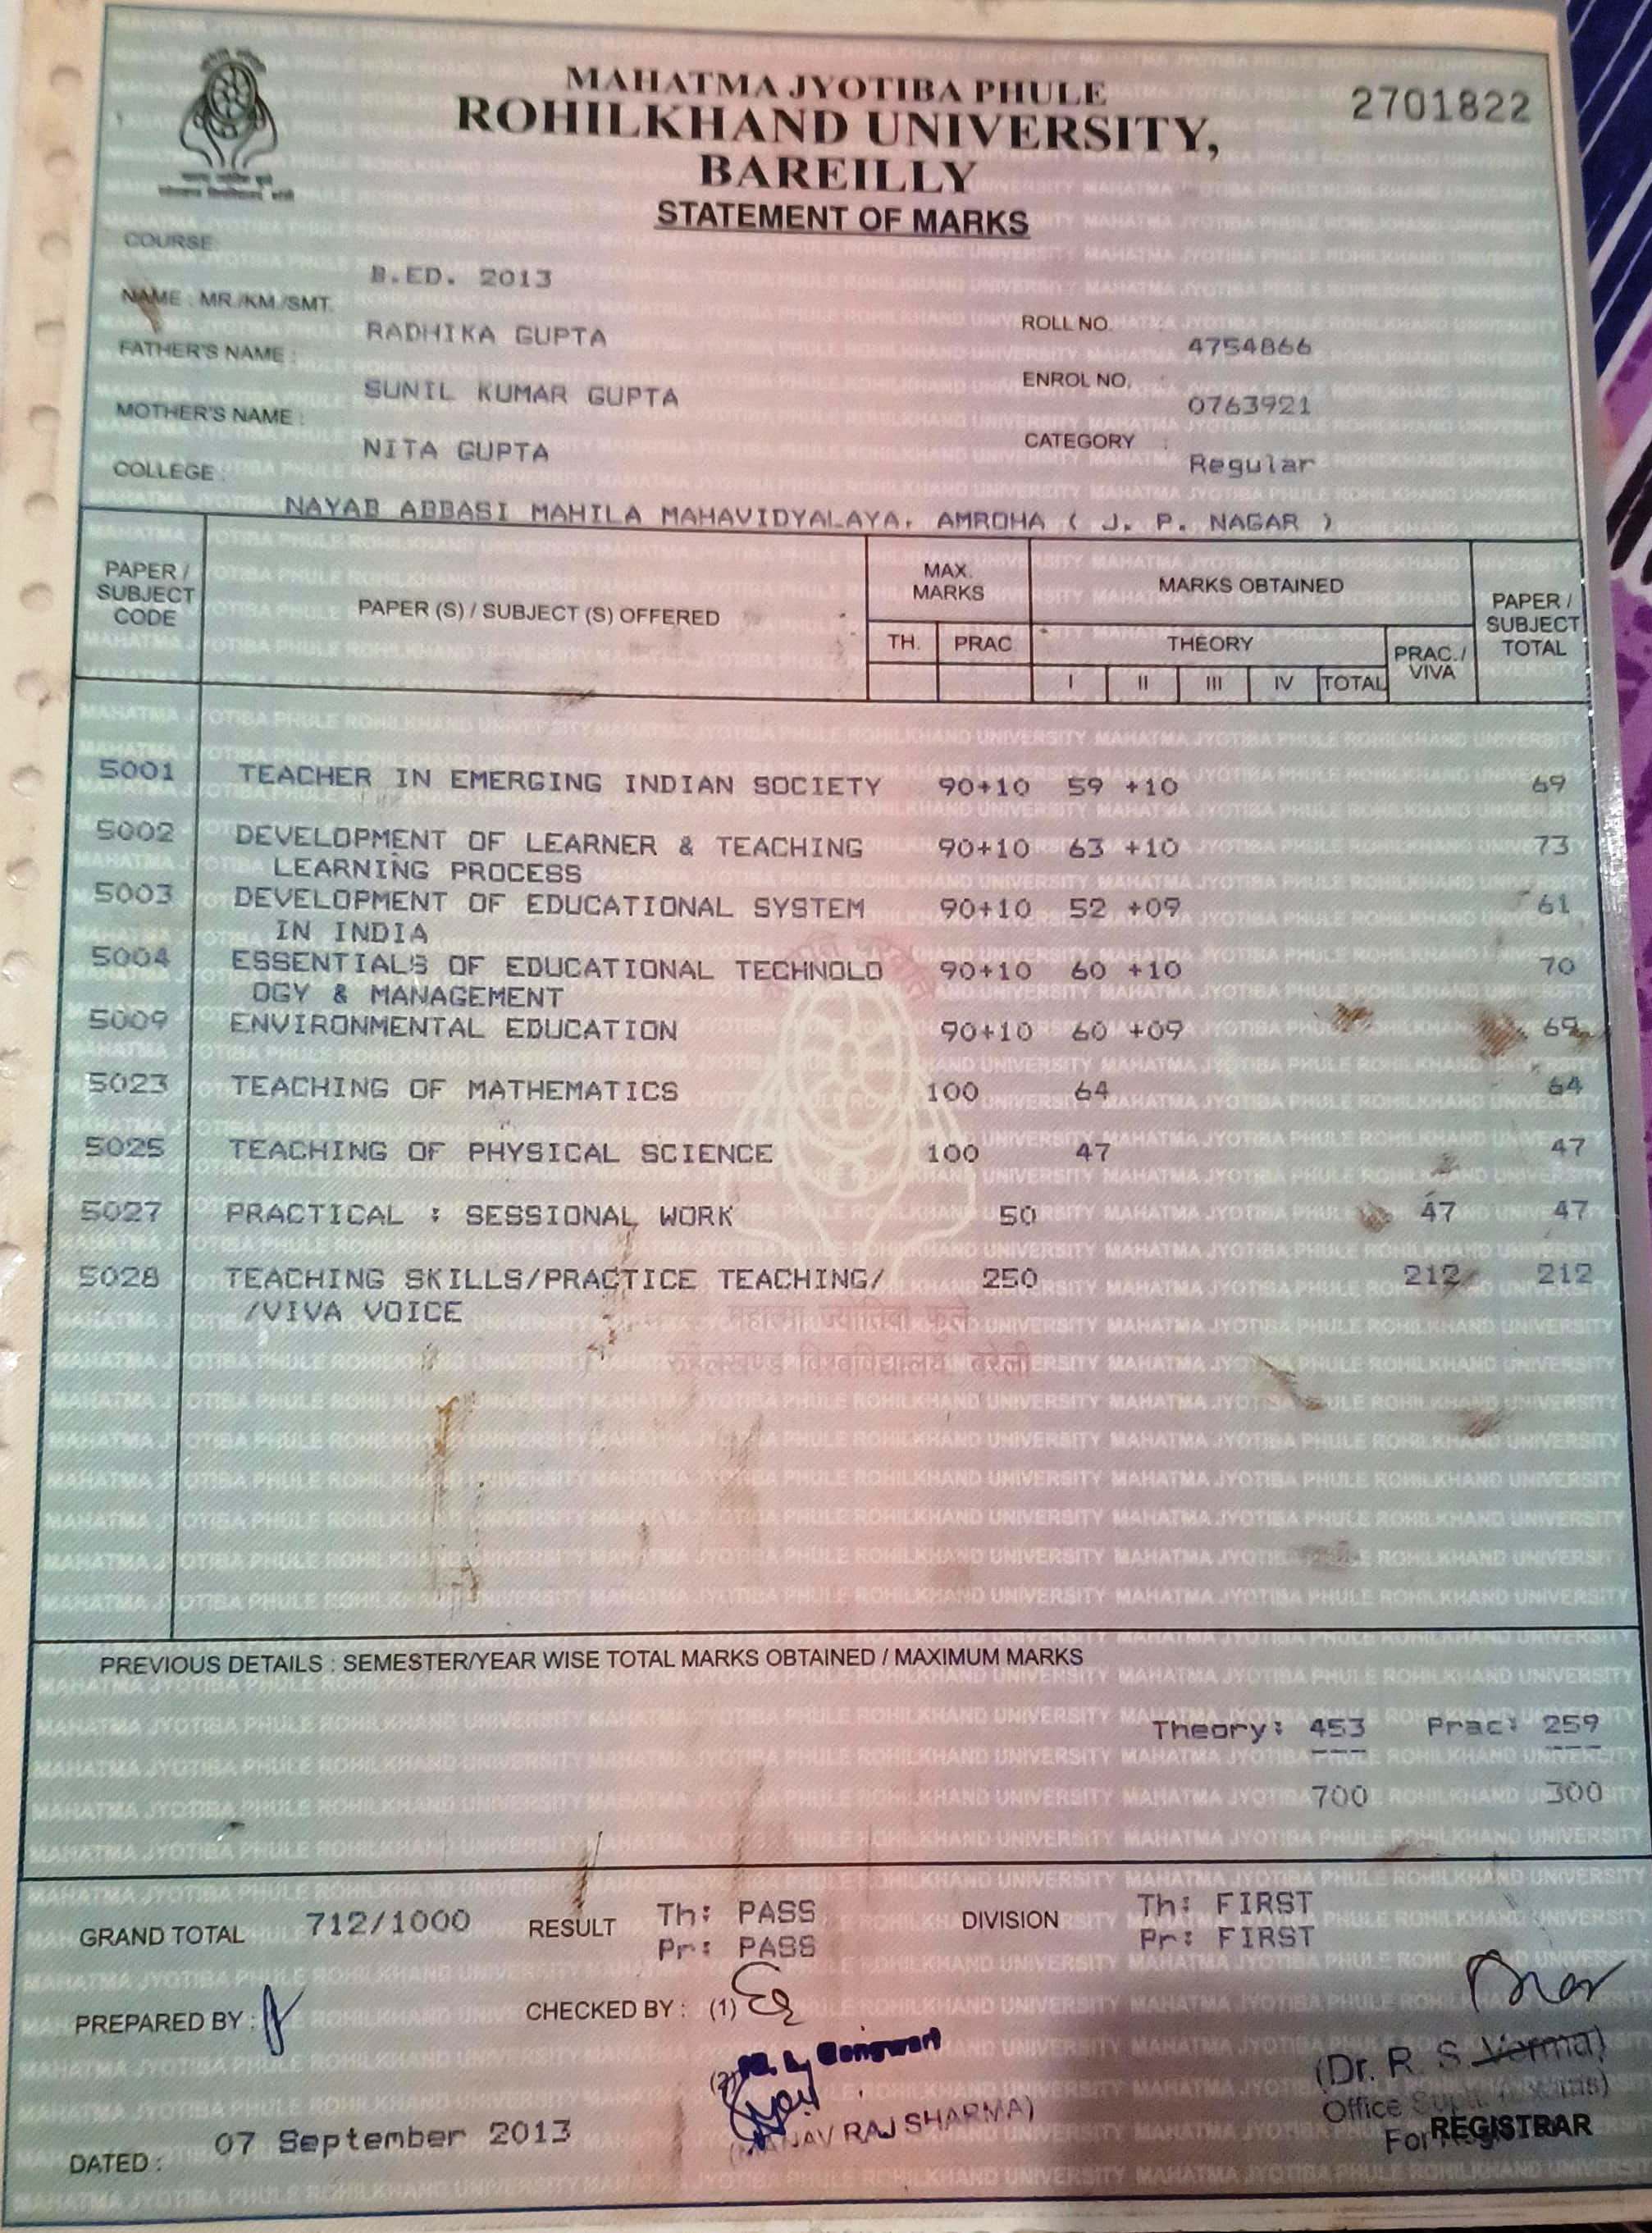 MAHATMA JYOTIBA PHULE
2701822
ROHILKHAND UNIVERSITY,
BAREILLY
STATEMENT OF MARKS
COURSE
B.ED. 2013
NAME : MR./KM./SMT.
RADHIKA GUPTA
ROLL NO.
4754866
FATHER'S NAME :
SUNIL KUMAR GUPTA
ENROL NO. :
0763921
MOTHER'S NAME :
NITA GUPTA
CATEGORY :
Regular
COLLEGE :
NAYAB ABBASI MAHILA MAHAVIDYALAYA, AMROHA ( J. P. NAGAR )
PAPER / SUBJECT CODE
PAPER (S) / SUBJECT (S) OFFERED
MAX. MARKS
MARKS OBTAINED
PAPER / SUBJECT TOTAL
TH. PRAC THEORY PRAC./ VIVA
I II III IV TOTAL
5001 TEACHER IN EMERGING INDIAN SOCIETY 90+10 59 +10 69
5002 DEVELOPMENT OF LEARNER & TEACHING 90+10 63 +10 73
LEARNING PROCESS
5003 DEVELOPMENT OF EDUCATIONAL SYSTEM 90+10 52 +09 61
IN INDIA
5004 ESSENTIALS OF EDUCATIONAL TECHNOLO 90+10 60 +10 70
OGY & MANAGEMENT
5009 ENVIRONMENTAL EDUCATION 90+10 60 +09 69
5023 TEACHING OF MATHEMATICS 100 64 64
5025 TEACHING OF PHYSICAL SCIENCE 100 47 47
5027 PRACTICAL : SESSIONAL WORK 50 47 47
5028 TEACHING SKILLS/PRACTICE TEACHING/ 250 212 212
/VIVA VOICE
महात्मा ज्योतिबा फुले
रुहेलखण्ड विश्वविद्यालय बरेली
PREVIOUS DETAILS : SEMESTER/YEAR WISE TOTAL MARKS OBTAINED / MAXIMUM MARKS
Theory: 453 Prac: 259
--- ---
700 300
GRAND TOTAL 712/1000 RESULT Th: PASS DIVISION Th: FIRST
Pr: PASS Pr: FIRST
PREPARED BY :
CHECKED BY : (1)
(2)
(MANAV RAJ SHARMA)
(Dr. R. S. Verma)
Office
For REGISTRAR
DATED : 07 September 2013